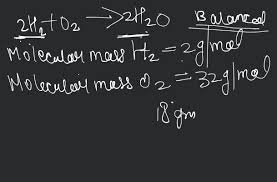 2H₂+O₂ —>2H₂O Balanced
Molecular mass H₂=2g/mol
Molecular mass O₂=32g/mol
18 gm